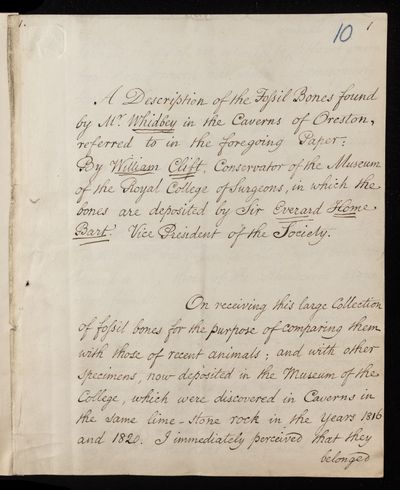 1.
10
1
A Description of the Fossil Bones found
by Mr. Whidbey in the Caverns of Oreston,
referred to in the foregoing Paper:
By William Clift, Conservator of the Museum
of the Royal College of Surgeons, in which the
bones are deposited by Sir Everard Home
Bart. Vice President of the Society.
On receiving this large Collection
of fossil bones for the purpose of comparing them
with those of recent animals; and with other
specimens, now deposited in the Museum of the
College, which were discovered in Caverns in
the same lime-stone rock in the years 1816
and 1820. I immediately perceived that they
belonged